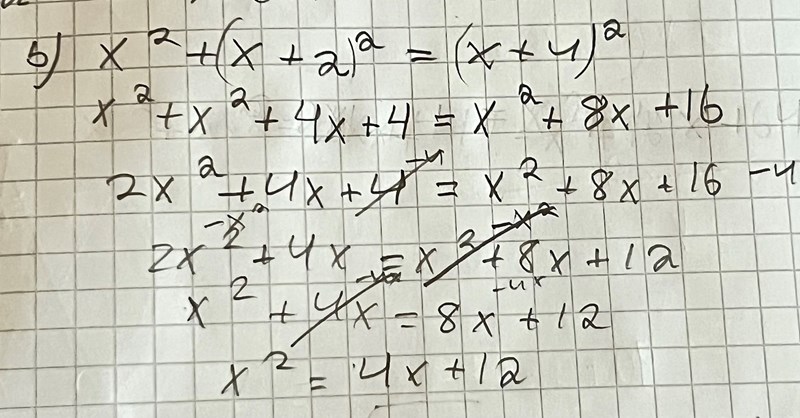 b) x² + (x + 2)² = (x + 4)²
x² + x² + 4x + 4 = x² + 8x + 16
2x² + 4x + 4 -4 = x² + 8x + 16 - 4
2x² -x² + 4x = x² -x² + 8x + 12
x² + 4x -4x = 8x -4x + 12
x² = 4x + 12